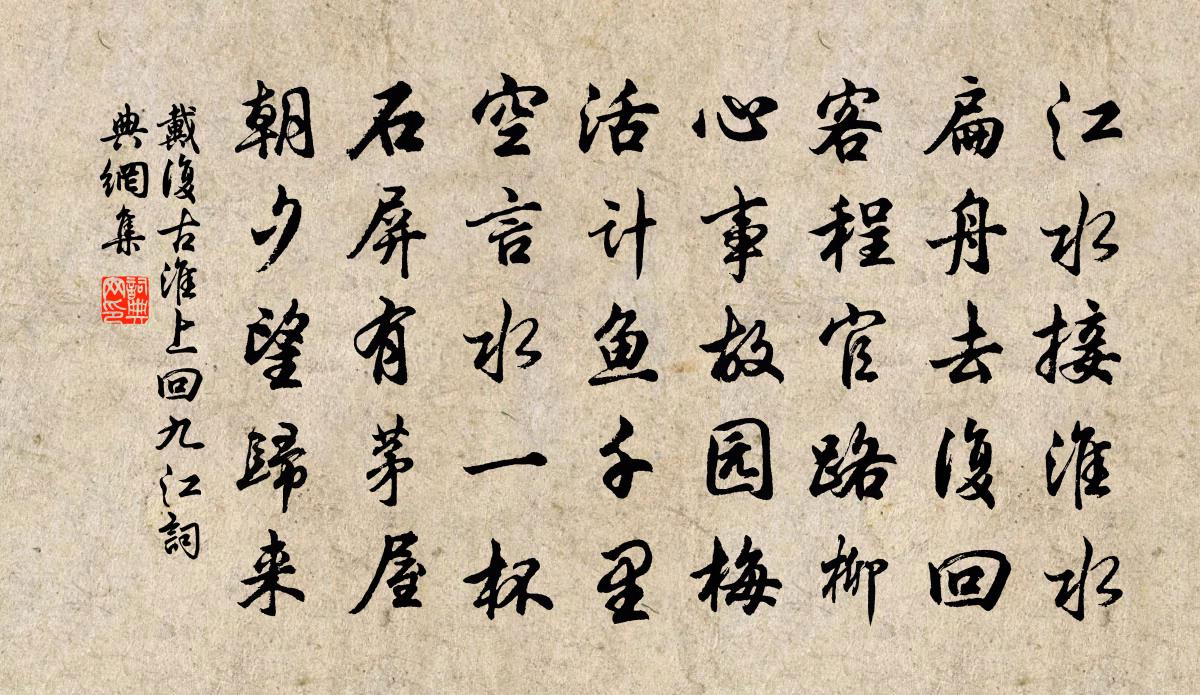 江水接淮水
扁舟去復回
客程官路柳
心事故园梅
活计鱼千里
空言水一杯
石屏有茅屋
朝夕望歸来
戴復古淮上回九江詞
典網集
詞典网印